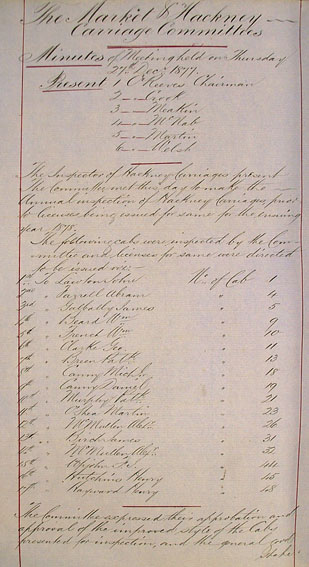 The Market & Hackney
Carriage Committees
Minutes of Meeting held on Thursday
27th Decr 1877.
Present 1 Cr Reeves Chairman
2 " Crook
3 " Meakin
4 " McNab
5 " Martin
6 " Welsh
The Inspector of Hackney Carriages present
The Committee met this day to make the
Annual inspection of Hackney Carriages prior
to licenses being issued for same for the ensuing
year 1878.
The following cabs were inspected by the Com-
mittee and licenses for same were directed
to be issued viz:-
1st To Lawton John No. of Cab 1
2nd " Farrell Abram " 4
3rd " Galbally James " 5
" Beard Wm " 9
" French Wm " 10
6th " Clarke Geo " 11
7th " Breen Patk " 13
8th " Canny Michl " 18
9th " Canny Daniel " 19
10th " Murphy Patk " 21
11th " O'Shea Martin " 23
12th " McMullen Alex " 26
13th " Bird James " 31
" McMullen Alex " 32
15th " " 44
16th " Hutchins Henry " 45
17th " Hayward Henry " 48
The Committee expressed their approbation and
approval of the improved style of the Cabs
presented for inspection, and the general